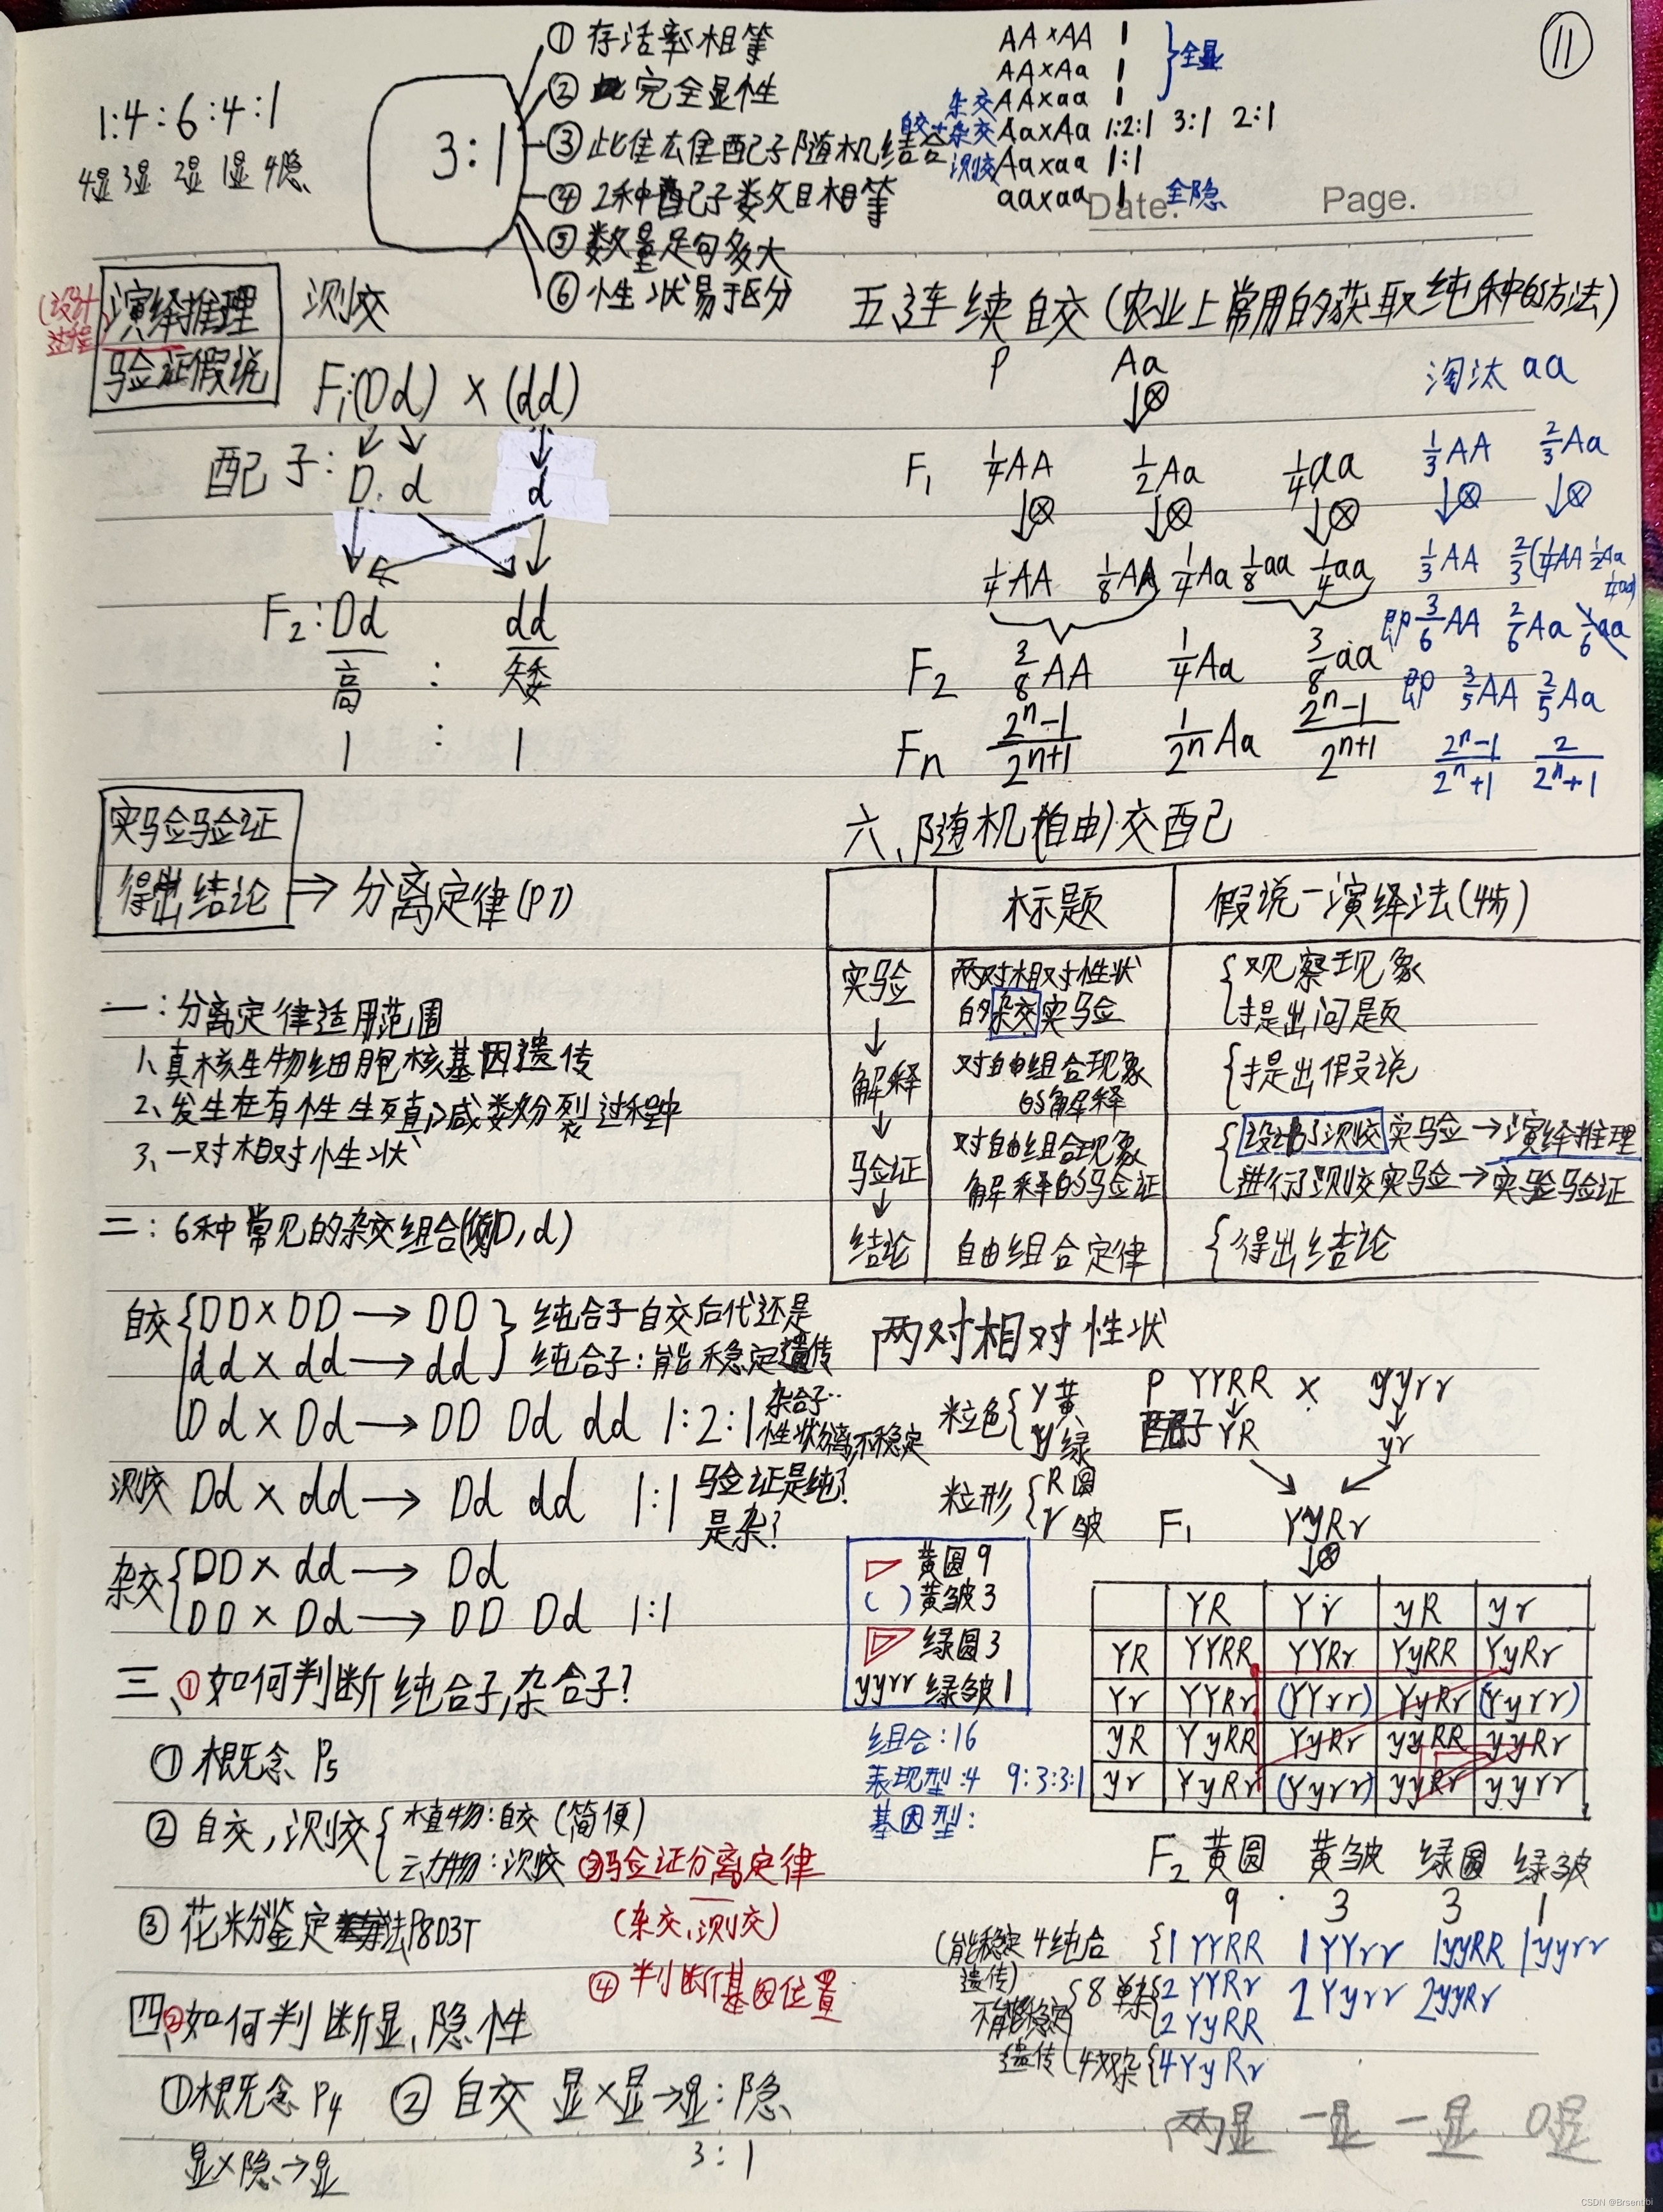 11
1:4:6:4:1
4显 3显 2显 1显 4隐
3:1
① 存活率相等
② 完全显性
③ 雌雄配子随机结合
④ 2种配子数目相等
⑤ 数量足够多大
⑥ 性状易于区分
AA×AA 1
AA×Aa 1
杂交 AA×aa 1
全显
自交+杂交 Aa×Aa 1:2:1 3:1 2:1
测交 Aa×aa 1:1
aa×aa 1 全隐
Date. Page.
(设计过程)
演绎推理
验证假说
测交
F₁(Dd) × (dd)
配子: D. d d
F₂: Dd dd
高 : 矮
1 : 1
实验验证
得出结论 ⇒ 分离定律(P7)
一:分离定律适用范围
1、真核生物细胞核基因遗传
2、发生在有性生殖减数分裂过程中
3、一对相对性状
二:6种常见的杂交组合(例D,d)
自交 { DD×DD → DD
dd×dd → dd
} 纯合子自交后代还是
纯合子:能稳定遗传
Dd×Dd → DD Dd dd 1:2:1 杂合子..
性状分离不稳定
测交 Dd×dd → Dd dd 1:1 验证是纯?
是杂?
杂交 { DD×dd → Dd
DD×Dd → DD Dd 1:1
三、①如何判断纯合子,杂合子?
① 概念 P5
② 自交,测交 { 植物:自交(简便)
动物:测交
③验证分离定律
(杂交,测交)
③ 花粉鉴定法P8D3T
④ 判断基因位置
四、②如何判断显、隐性
①概念 P4 ② 自交 显×显→显:隐
显×隐→显 3:1
五、连续自交(农业上常用的获取纯种的方法)
P Aa 淘汰 aa
↓⊗
F₁ 1/4AA 1/2Aa 1/4aa 1/3AA 2/3Aa
↓⊗ ↓⊗ ↓⊗ ↓⊗ ↓⊗
1/4AA 1/8AA 1/4Aa 1/8aa 1/4aa 1/3AA 2/3(1/4AA 1/2Aa 1/4aa)
即 3/6AA 2/6Aa 1/6aa
F₂ 3/8AA 1/4Aa 3/8aa 即 3/5AA 2/5Aa
Fn 2ⁿ-1/2ⁿ⁺¹ 1/2ⁿAa 2ⁿ-1/2ⁿ⁺¹ 2ⁿ-1/2ⁿ+1 2/2ⁿ+1
六、随机(自由)交配
标题 假说一演绎法(4步)
实验 两对相对性状的杂交实验 { 观察现象
提出问题
↓
解释 对自由组合现象的解释 { 提出假说
↓
验证 对自由组合现象解释的验证 { 设计了测交实验→演绎推理
进行了测交实验→实验验证
↓
结论 自由组合定律 { 得出结论
两对相对性状
粒色 { Y黄
y绿
粒形 { R圆
r皱
P YYRR × yyrr
配子 YR yr
F₁ YyRr
↓⊗
黄圆 9
( ) 黄皱 3
绿圆 3
yyrr 绿皱 1
组合:16
表现型:4 9:3:3:1
基因型:
YR Yr yR yr
YR YYRR YYRr YyRR YyRr
Yr YYRr (YYrr) YyRr (Yyrr)
yR YyRR YyRr yyRR yyRr
yr YyRr (Yyrr) yyRr yyrr
F₂ 黄圆 黄皱 绿圆 绿皱
9 3 3 1
(能稳定遗传) 4纯合 { 1YYRR 1YYrr 1yyRR 1yyrr
不能稳定遗传 { 8单杂 { 2YYRr 2Yyrr 2yyRr
2YyRR
4双杂 { 4YyRr
两显 一显 一显 0显
CSDN @Brsentibi